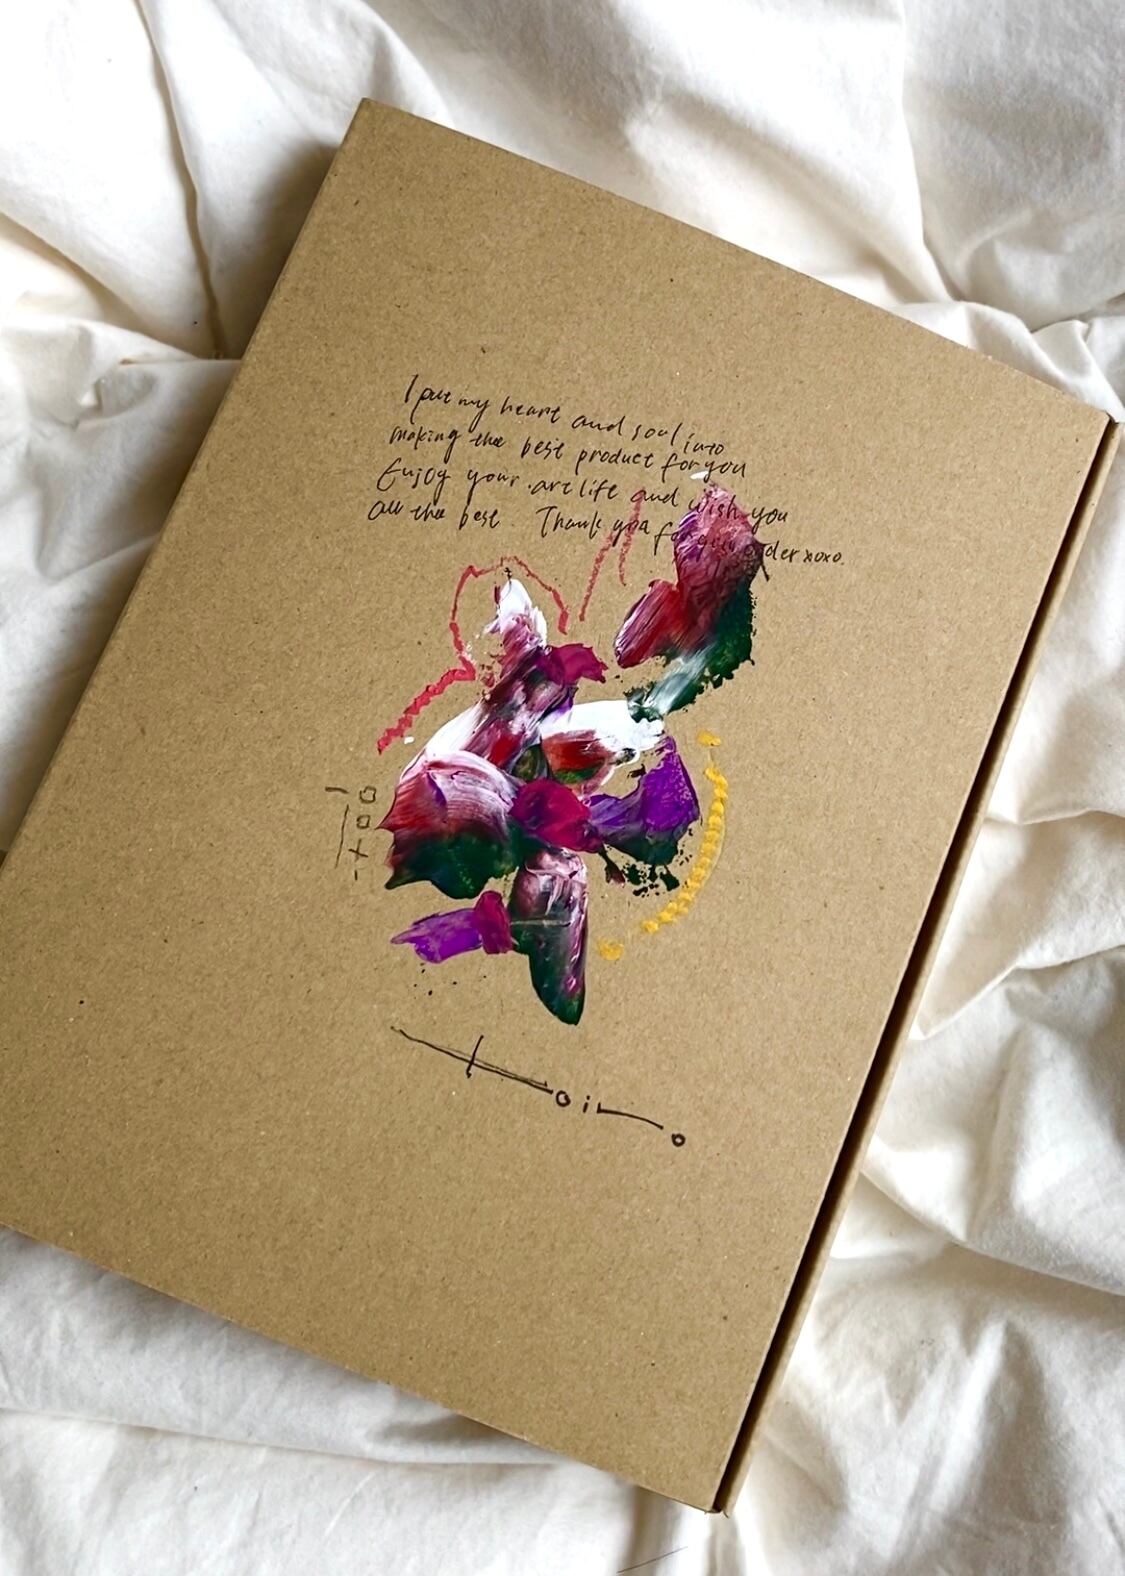 I put my heart and soul into
making the best product for you
Enjoy your art life and wish you
all the best. Thank you for your order xoxo.
toiro